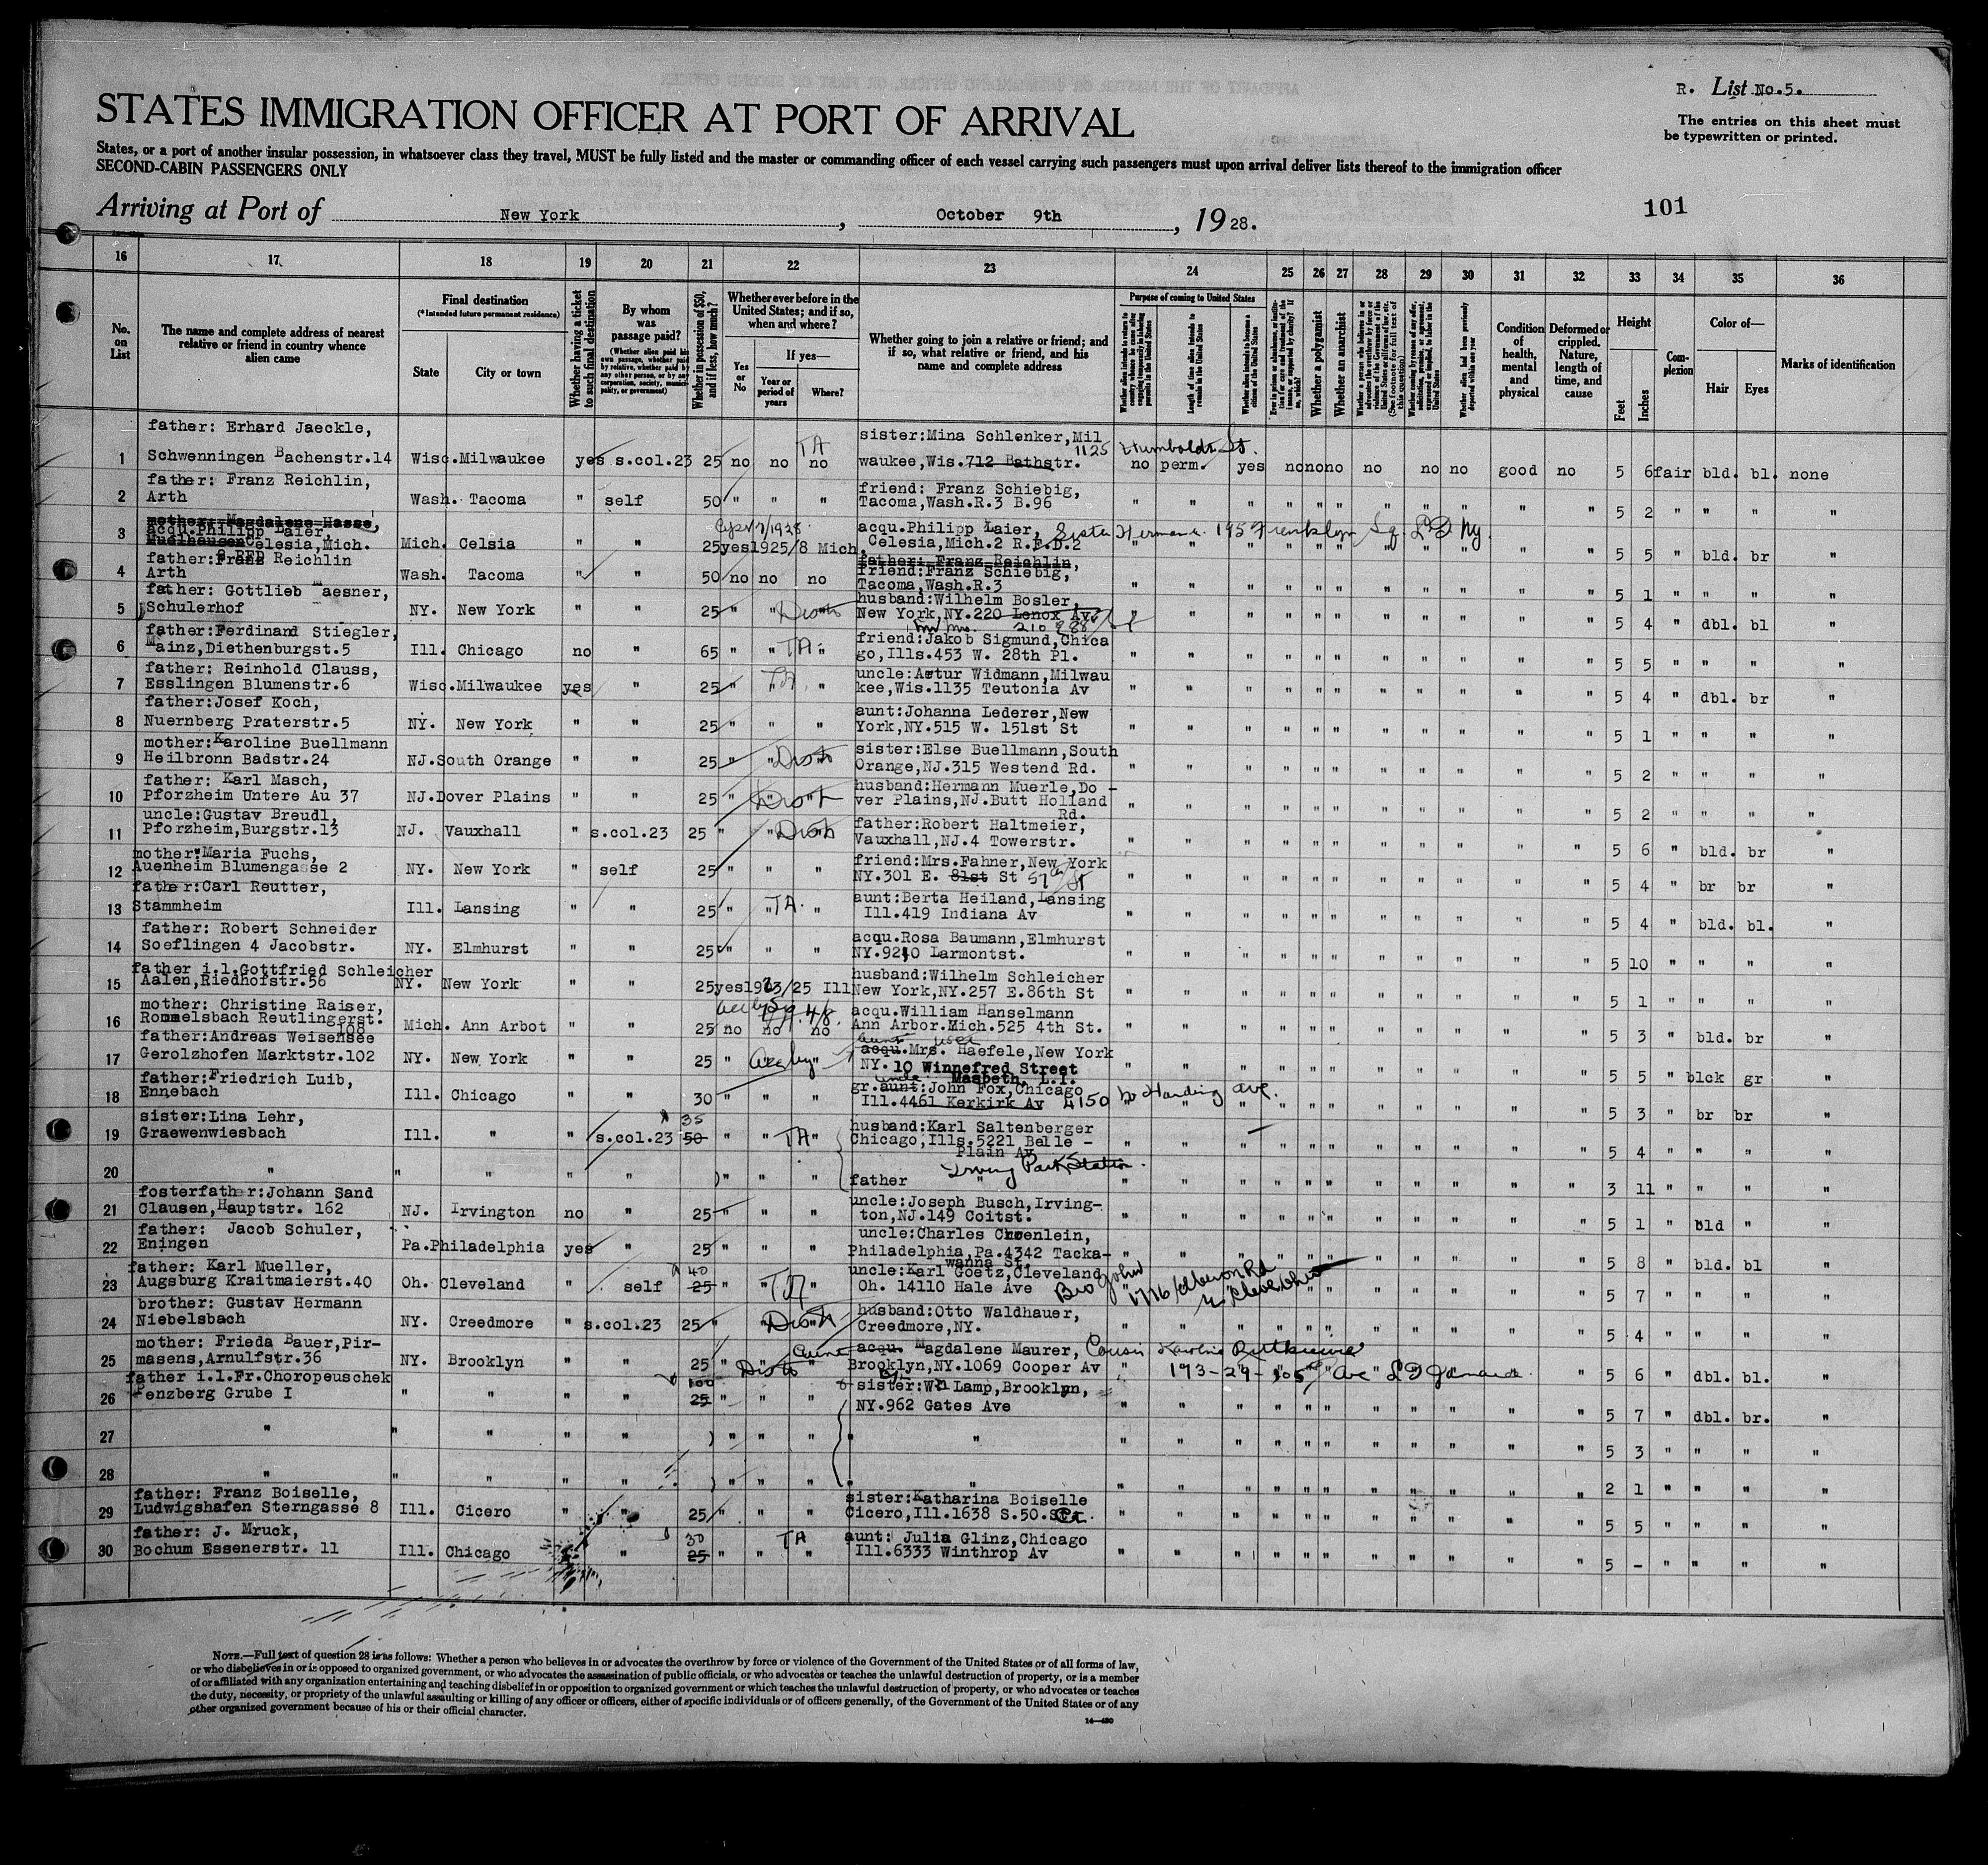 R. List No.5.
STATES IMMIGRATION OFFICER AT PORT OF ARRIVAL
The entries on this sheet must
be typewritten or printed.
States, or a port of another insular possession, in whatsoever class they travel, MUST be fully listed and the master or commanding officer of each vessel carrying such passengers must upon arrival deliver lists thereof to the immigration officer
SECOND-CABIN PASSENGERS ONLY
Arriving at Port of New York, October 9th, 1928.
101
16 17 18 19 20 21 22 23 24 25 26 27 28 29 30 31 32 33 34 35 36
No. on List
The name and complete address of nearest relative or friend in country whence alien came
Final destination (*Intended future permanent residence)
State
City or town
Whether having a ticket to such final destination
By whom was passage paid?
(Whether alien paid his own passage, whether paid by relative, whether paid by any other person, or by any corporation, society, municipality, or government)
Whether in possession of $50, and if less, how much?
Whether ever before in the United States; and if so, when and where?
Yes or No
If yes—
Year or period of years
Where?
Whether going to join a relative or friend; and if so, what relative or friend, and his name and complete address
Purpose of coming to United States
Length of time alien intends to remain in the United States
Whether alien intends to become a citizen of the United States
Whether a polygamist
Whether an anarchist
Condition of health, mental and physical
Deformed or crippled. Nature, length of time, and cause
Height
Feet
Inches
Complexion
Color of—
Hair
Eyes
Marks of identification
1 father: Erhard Jaeckle, Schwenningen Bachenstr.14 Wisc. Milwaukee yes s.col.23 25 no no no TA sister:Mina Schlenker,Milwaukee,Wis.712 Bathstr. 1125 Humboldt St. no perm. yes no no no no no no good no 5 6 fair bld. bl. none
2 father: Franz Reichlin, Arth Wash. Tacoma " self 50 " " " friend: Franz Schiebig, Tacoma,Wash.R.3 B.96 " " " " " " " " " " " 5 2 " " " "
3 mother: Magdalene Hasse, Muelhausen acqu.Philipp Laier, Celesia,Mich. 2 RFD Mich. Celsia " " 25 yes 1925/8 Mich. acqu.Philipp Laier, Celesia,Mich.2 R.F.D.2 " " " " " " " " " " " 5 5 " bld. br "
4 father:Franz Reichlin Arth Wash. Tacoma " " 50 no no no father: Franz Reichlin, friend:Franz Schiebig, Tacoma,Wash.R.3 " " " " " " " " " " " 5 1 " " " "
5 father: Gottlieb maesner, Schulerhof NY. New York " " 25 " " " husband:Wilhelm Bosler, New York,NY.220 Lenox Av. " " " " " " " " " " 5 4 " dbl. bl "
6 father:Ferdinand Stiegler, Mainz,Diethenburgst.5 Ill. Chicago no " 65 " " TA " friend:Jakob Sigmund,Chicago,Ills.453 W. 28th Pl. " " " " " " " " " " " 5 5 " " " "
7 father: Reinhold Clauss, Esslingen Blumenstr.6 Wisc. Milwaukee yes " 25 " TA " uncle:Artur Widmann,Milwaukee,Wis.1135 Teutonia Av " " " " " " " " " " " 5 4 " dbl. br "
8 father:Josef Koch, Nuernberg Praterstr.5 NY. New York " " 25 " " " aunt:Johanna Lederer,New York,NY.515 W. 151st St " " " " " " " " " " " 5 1 " " " "
9 mother:Karoline Buellmann Heilbronn Badstr.24 NJ. South Orange " " 25 " " " sister:Else Buellmann,South Orange,NJ.315 Westend Rd. " " " " " " " " " " " 5 2 " " " "
10 father: Karl Masch, Pforzheim Untere Au 37 NJ. Dover Plains " " 25 " " " husband:Hermann Muerle,Dover Plains,NJ.Butt Holland Rd. " " " " " " " " " " " 5 2 " " " "
11 uncle:Gustav Breudl, Pforzheim,Burgstr.13 NJ. Vauxhall " s.col.23 25 " " " father:Robert Haltmeier, Vauxhall,NJ.4 Towerstr. " " " " " " " " " " " 5 6 " bld. br "
12 mother:Maria Fuchs, Auenheim Blumengasse 2 NY. New York " self 25 " " " friend:Mrs.Fahner,New York NY.301 E. 81st St 57th St " " " " " " " " " " " 5 4 " br br "
13 father:Carl Reutter, Stammheim Ill. Lansing " " 25 " TA. " aunt:Berta Heiland,Lansing Ill.419 Indiana Av " " " " " " " " " " " 5 4 " bld. bl. "
14 father: Robert Schneider Soeflingen 4 Jacobstr. NY. Elmhurst " " 25 " " " acqu.Rosa Baumann,Elmhurst NY.9210 Larmontst. " " " " " " " " " " " 5 10 " " " "
15 father i.l.Gottfried Schleicher Aalen,Riedhofstr.56 NY. New York " " 25 yes 1923/25 Ill husband:Wilhelm Schleicher New York,NY.257 E.86th St " " " " " " " " " " " 5 1 " " " "
16 mother: Christine Raiser, Rommelsbach Reutlingerst. 108 Mich. Ann Arbot " " 25 no no no acqu.William Hanselmann Ann Arbor.Mich.525 4th St. " " " " " " " " " " " 5 3 " bld. br "
17 father:Andreas Weisensee Gerolzhofen Marktstr.102 NY. New York " " 25 " " acqu. aunt Mrs. Haefele,New York NY. 10 Winnefred Street Maspeth, L.I. " " " " " " " " " " " 5 5 " blck gr "
18 father:Friedrich Luib, Ennebach Ill. Chicago " " 30 " " " gr.aunt: uncle John Fox,Chicago Ill.4461 Kerkirk Av 4150 N Harding ave. " " " " " " " " " " " 5 3 " br br "
19 sister:Lina Lehr, Graewenwiesbach Ill. " " s.col.23 50 35 " " TA " husband:Karl Saltenberger Chicago,Ills.5221 Belle - Plain Av Irving Park Station. " " " " " " " " " " " 5 4 " " " "
20 " " " " " ) " " " father " " " " " " " " " " " " 3 11 " " " "
21 fosterfather:Johann Sand Clausen,Hauptstr. 162 NJ. Irvington no " 25 " " " uncle:Joseph Busch,Irvington,NJ.149 Coitst. " " " " " " " " " " " 5 1 " bld " "
22 father: Jacob Schuler, Eningen Pa. Philadelphia yes " 25 " " " uncle:Charles Chroenlein, Philadelphia,Pa.4342 Tackawanna St. " " " " " " " " " " " 5 8 " bld. bl "
23 father: Karl Mueller, Augsburg Kraitmaierst.40 Oh. Cleveland " self 25 40 " " TA " uncle:Karl Goetz,Cleveland Oh. 14110 Hale Ave Bro John " " " " " " 5 7 " " " "
24 brother: Gustav Hermann Niebelsbach NY. Creedmore " s.col.23 25 " " " husband:Otto Waldhauer, Creedmore,NY. " " " " " " " " " " " 5 4 " " " "
25 mother: Frieda Bauer,Pirmasens,Arnulfstr.36 NY. Brooklyn " " 25 " " " acqu. Magdalene Maurer, Brooklyn,NY.1069 Cooper Av Cousin 5 6 " dbl. bl. "
26 father i.l.Fr.Choropeuschek Penzberg Grube I " " " " 25 100 " " " sister:Wm Lamp,Brooklyn, NY.962 Gates Ave " " " " " " " " " " " 5 7 " dbl. br. "
27 " " " " " ) " " " " " " " " " " " " " " " " " 5 3 " " " "
28 " " " " " ) " " " " " " " " " " " " " " " " " 2 1 " " " "
29 father: Franz Boiselle, Ludwigshafen Sterngasse 8 Ill. Cicero " " 25 " " " sister:Katharina Boiselle Cicero,Ill.1638 S.50. " " " " " " " " " " " 5 5 " " " "
30 father: J. Mruck, Bochum Essenerstr. 11 Ill. Chicago " 25 30 " " TA " aunt: Julia Glinz,Chicago Ill.6333 Winthrop Av " " " " " " " " " " " 5 - " " " "
NOTE.—Full text of question 28 is as follows: Whether a person who believes in or advocates the overthrow by force or violence of the Government of the United States or of all forms of law,
or who disbelieves in or is opposed to organized government, or who advocates the assassination of public officials, or who advocates or teaches the unlawful destruction of property, or is a member
of or affiliated with any organization entertaining and teaching disbelief in or opposition to organized government or which teaches the unlawful destruction of property, or who advocates or teaches
the duty, necessity, or propriety of the unlawful assaulting or killing of any officer or officers, either of specific individuals or of officers generally, of the Government of the United States or of any
other organized government because of his or their official character.
14—430